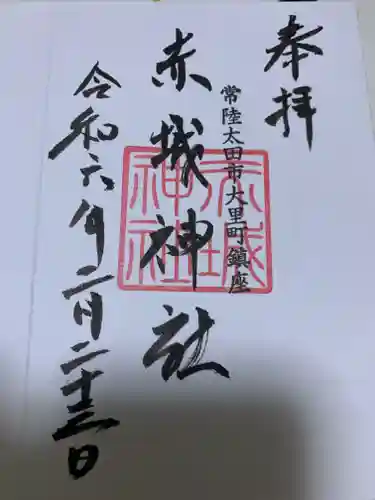 奉拝
常陸太田市大里町鎮座
赤城神社
赤城神社
令和六年二月二十三日